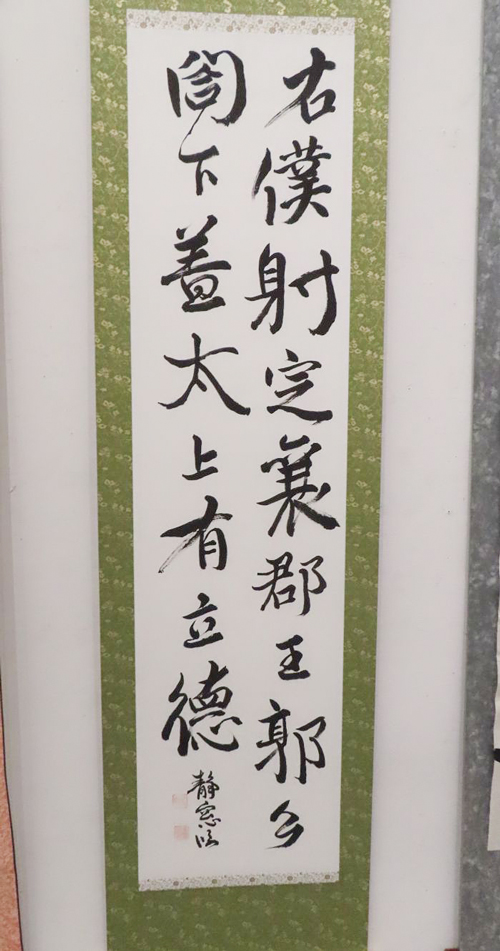 右僕射定襄郡王郭公
閤下蓋太上有立德
静窓臨